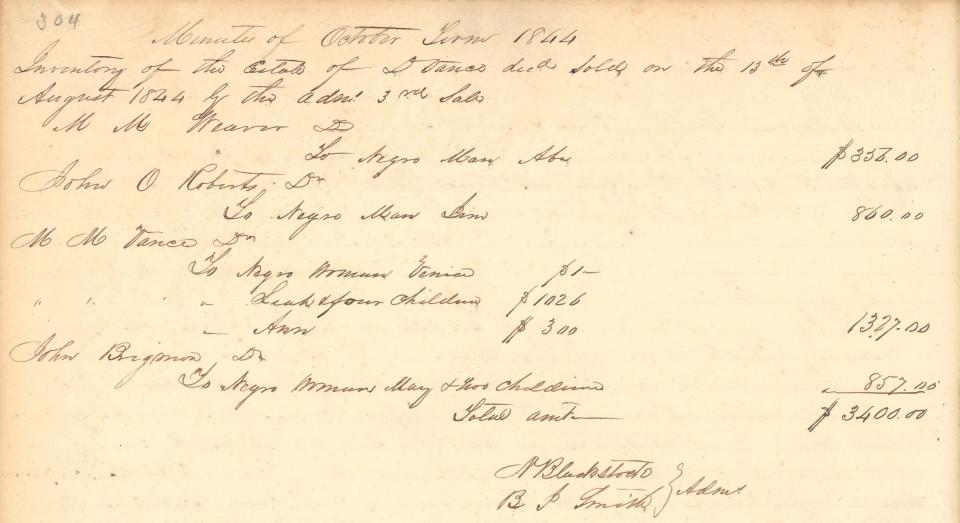 304
Minutes of October Term 1844
Inventory of the Estate of D Vance decd sold on the 13th of
August 1844 by the admr 3rd Sale
M M Weaver Dr
To Negro Man Abe $356.00
John O Roberts Dr
To Negro Man Jim 860.00
M M Vance Dr
To Negro Woman Venice $1—
" " " " Leah & four Children $1026
" Ann $300 1327.00
John Brigmon Dr
To Negro Woman May & two Children " 857.00
Total amt — $3400.00
N Blackstock
B J Smith } Admr.